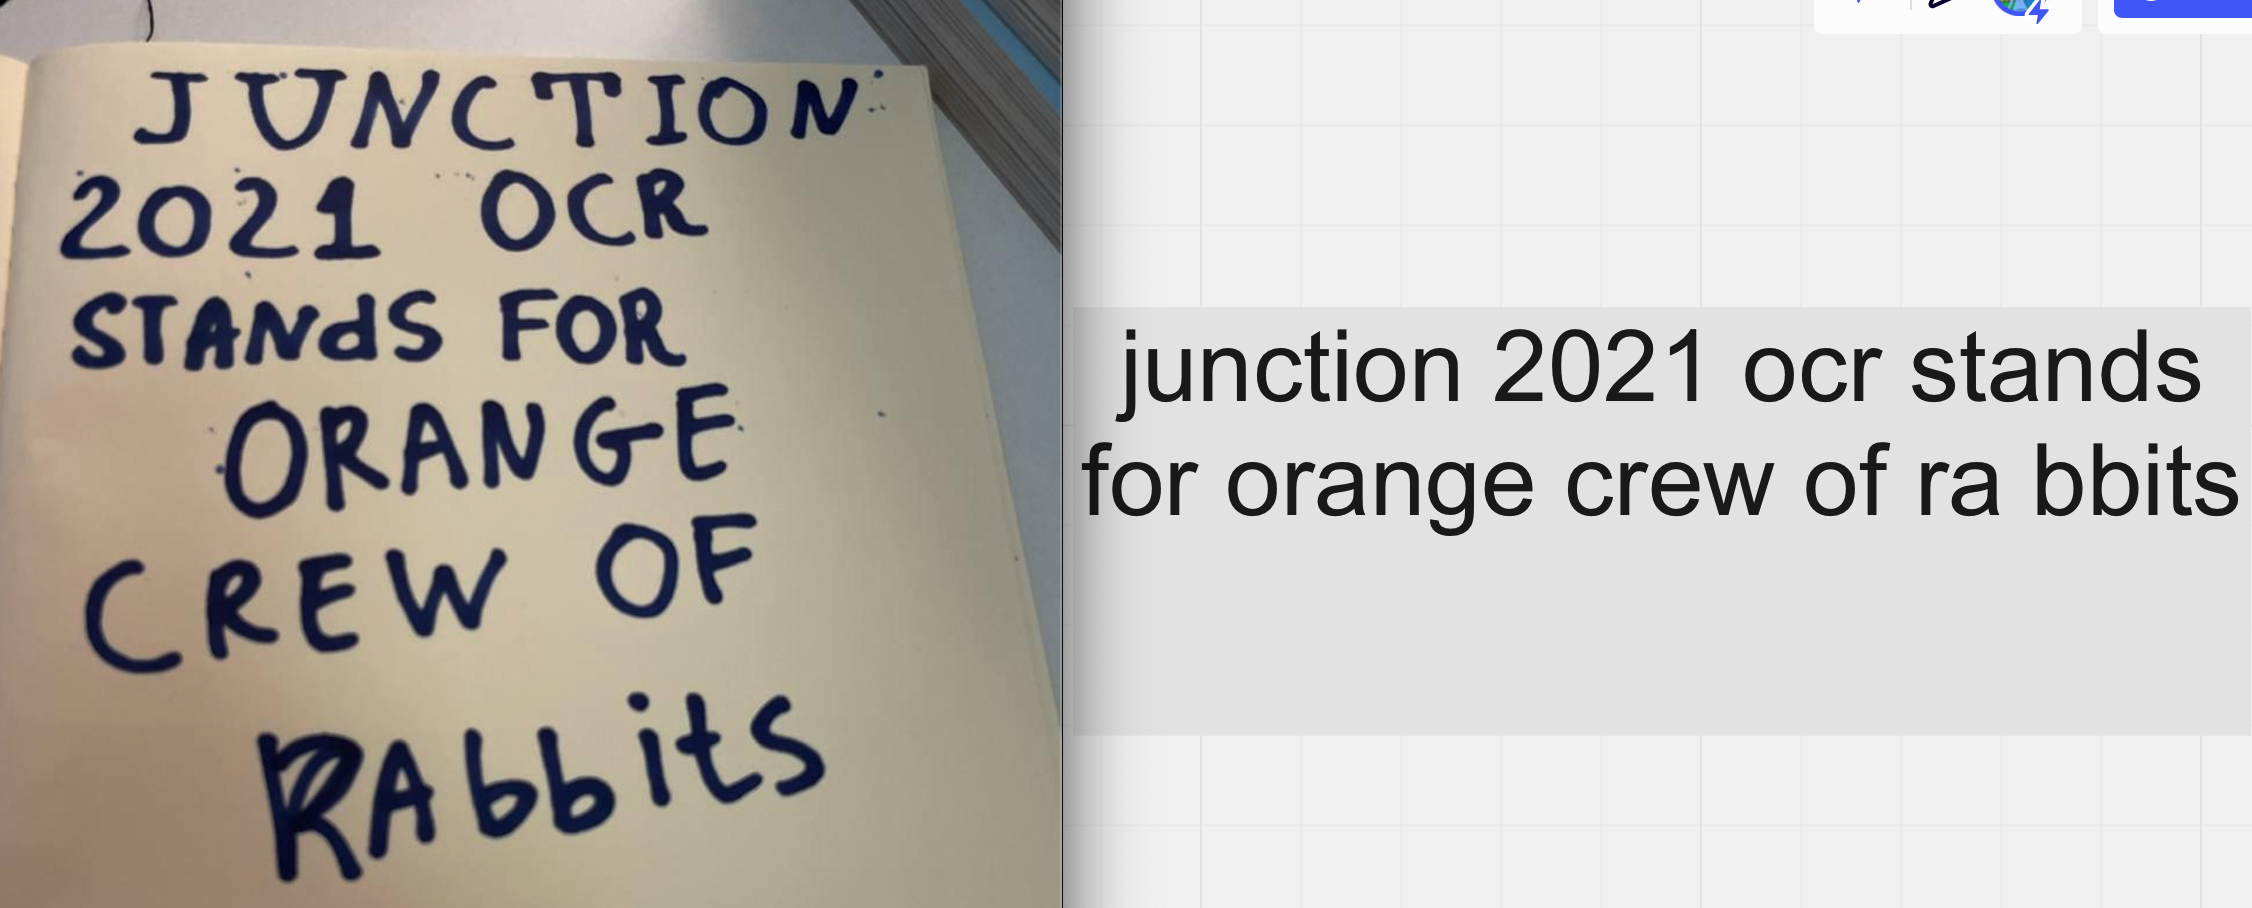 JUNCTION
2021 OCR
STANdS FOR
ORANGE
CREW OF
RAbbits
junction 2021 ocr stands
for orange crew of ra bbits